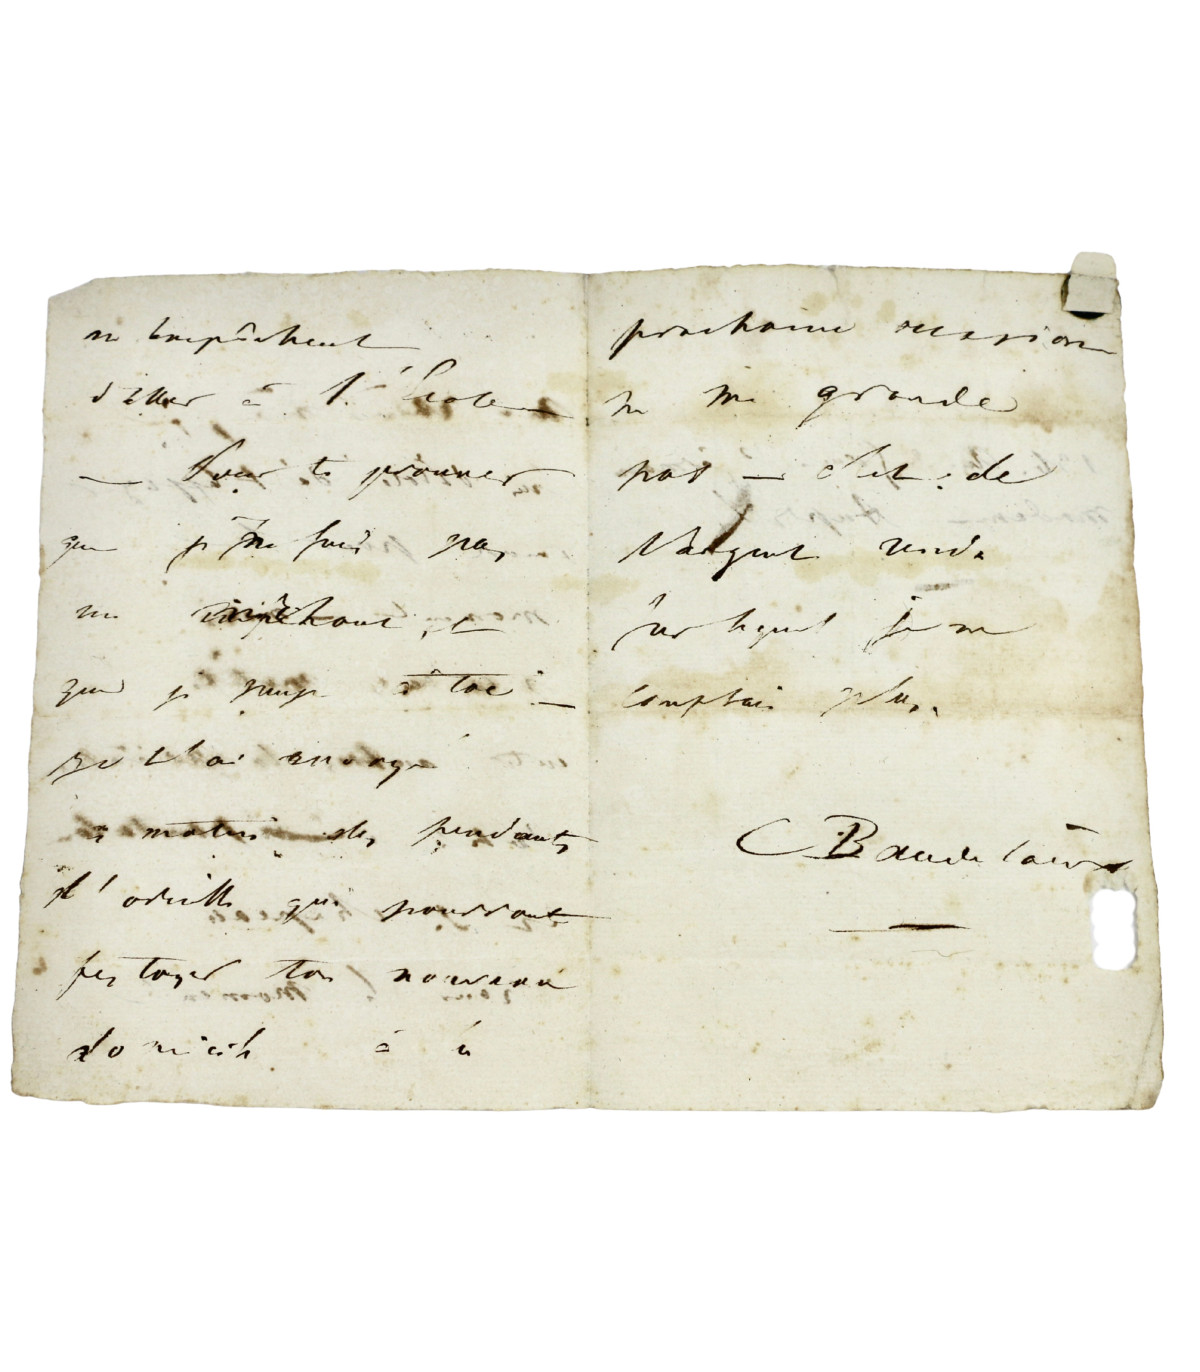 m'empêchent
d'aller à l'École
— Pour te prouver
que je ne suis pas
un méchant, et
que je songe à toi —
je t'ai envoyé
ce matin des pendants
d'oreille qui pourront
festoyer ton nouveau
domicile à la
prochaine occasion
ne me gronde
pas — c'est de
l'argent rendu
sur lequel je ne
comptais plus.
C Baudelaire